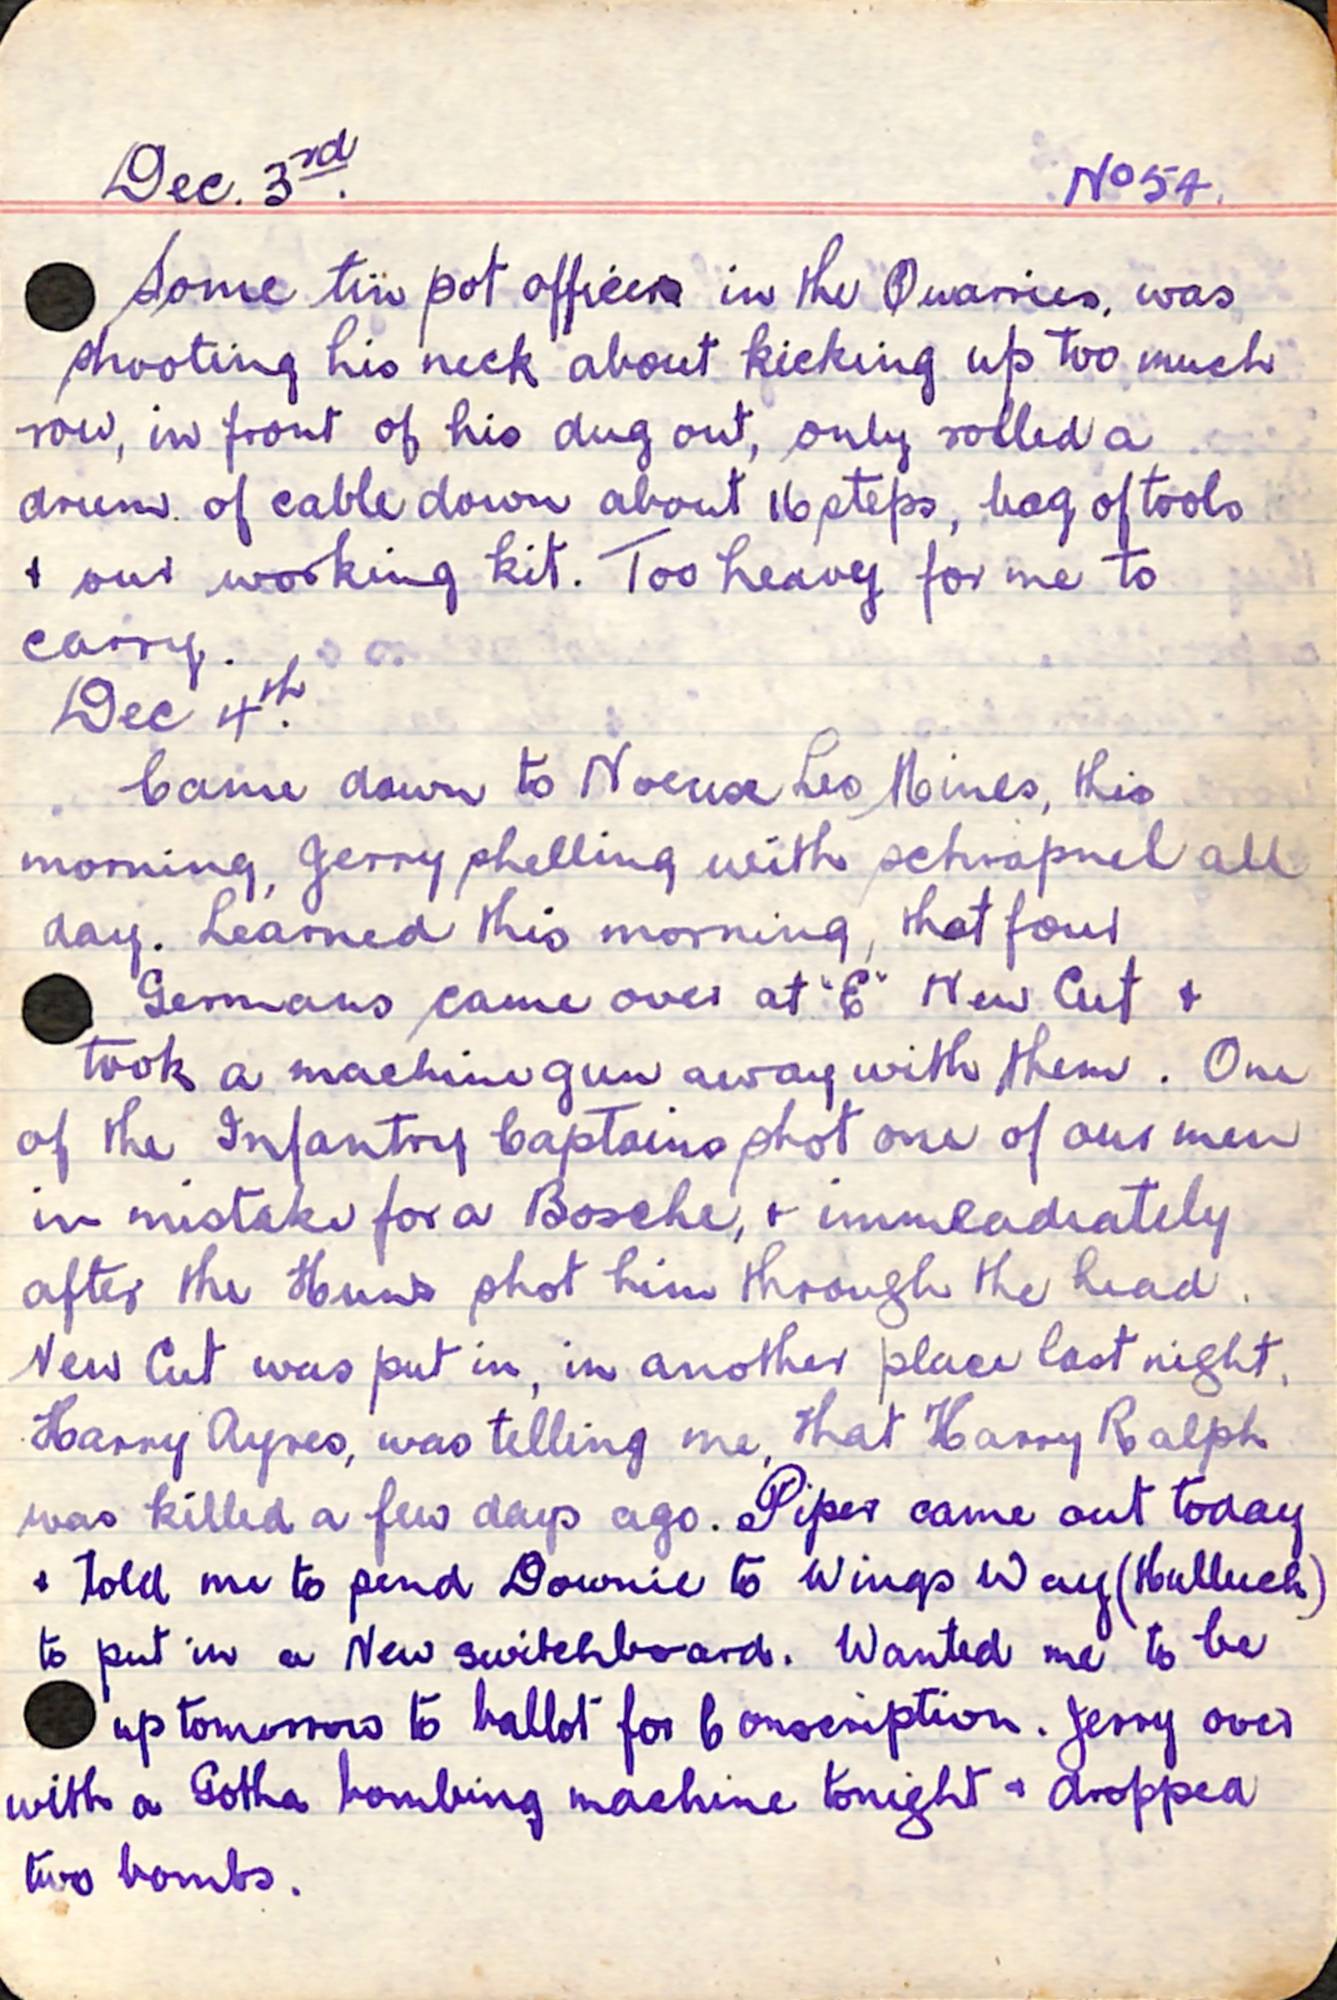 Dec. 3rd. No 54.
Some tin pot officer in the Quarries, was
shooting his neck about kicking up too much
row, in front of his dug out, only rolled a
drum of cable down about 16 steps, bag of tools
& our working kit. Too heavy for me to
carry.
Dec 4th.
Came down to Noeux Les Mines, this
morning, Jerry shelling with schrapnel all
day. Learned this morning, that four
Germans came over at "E" New Cut &
took a machine gun away with them. One
of the Infantry Captains shot one of our men
in mistake for a Bosche, & immeadiately
after the Huns shot him through the head.
New Cut was put in, in another place last night.
Harry Ayres, was telling me, that Harry Ralph
was killed a few days ago. Piper came out today
& told me to send Downie to Wings Way (Hulluch)
to put in a New switchboard. Wanted me to be
up tomorrow to ballot for Conscription. Jerry over
with a Gotha bombing machine tonight & dropped
two bombs.